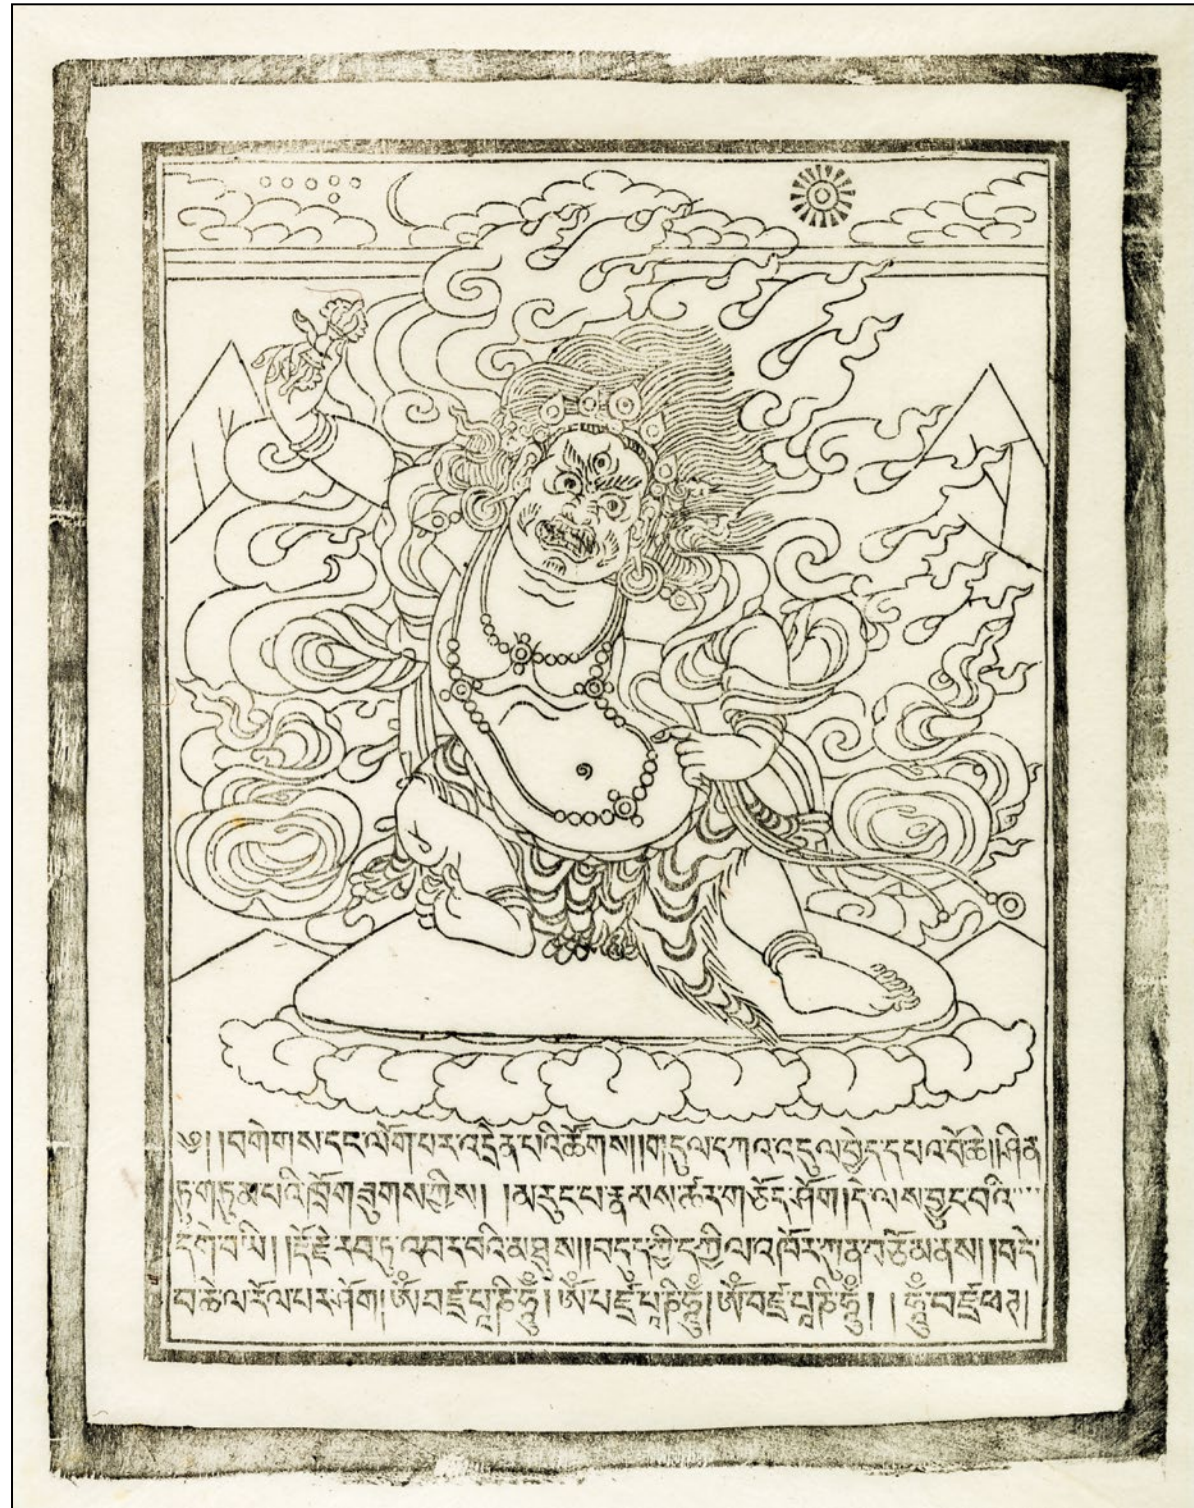 ༄། །བགེགས་དང་ལོག་པར་འདྲེན་པའི་ཚོགས། །གདུལ་དཀའ་འདུལ་བྱེད་དཔའ་བོ་ཆེ། །ཤིན་
ཏུ་གཏུམ་པའི་ཁྲོ་གཟུགས་ཀྱིས། །མ་རུང་པ་རྣམས་ཚར་གཅོད་ཤོག །དེ་ལས་བྱུང་བའི་
དགེ་བ་ཡི། །རྡོ་རྗེ་རབ་ཏུ་འབར་བའི་མཐུས། །བདུད་ཀྱི་དཀྱིལ་འཁོར་ཀུན་བཅོམ་ནས། །བདེ་
བ་ཆེ་ལ་རོལ་པར་ཤོག །ཨོཾ་བཛྲ་པཱ་ཎི་ཧཱུྃ། ཨོཾ་པཛྲ་པཱ་ཎི་ཧཱུྃ། ཨོཾ་བཛྲ་པཱ་ཎི་ཧཱུྃ། །ཧཱུྃ་བཛྲ་ཕཊ།